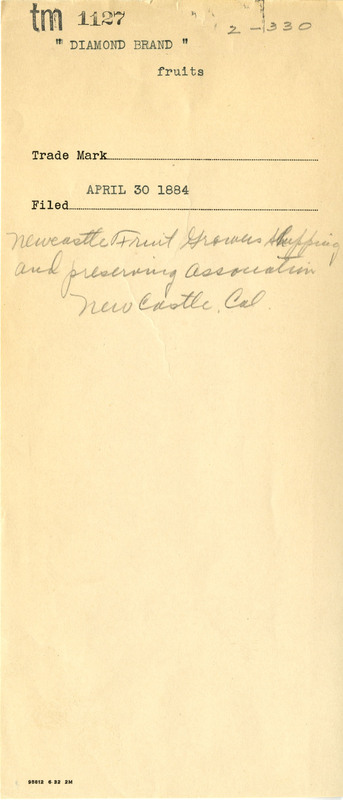 tm 1127
2-330
" DIAMOND BRAND "
fruits
Trade Mark
APRIL 30 1884
Filed
Newcastle Fruit Growers Shipping
and preserving Association
New Castle, Cal.
95612 6-32 2M